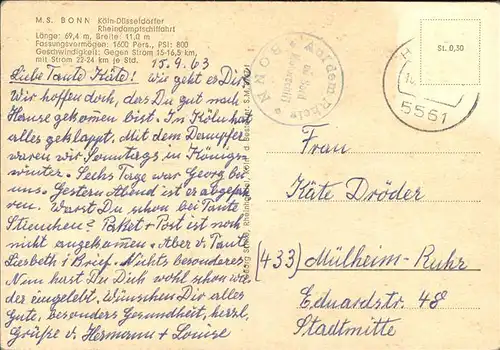 M.S. BONN Köln-Düsseldorfer
Rheindampfschiffahrt
Länge: 69,4 m, Breite: 11,0 m
Fassungsvermögen: 1600 Pers., PSi: 800
Geschwindigkeit: Gegen Strom 15-16,5 km,
mit Strom 22-24 km je Std.
15.9.63
Liebe Tante Käte! Wie geht es Dir?
Wir hoffen doch, dass Du gut nach
Hause gekommen bist. In Köln hat
alles geklappt. Mit dem Dampfer
waren wir Sonntags in Königs-
winter. Sechs Tage war Georg bei
uns. Gestern Abend ist er abgefah-
ren. Warst Du schon bei Tante
Stinchen? Paket + Post ist noch
nicht angekommen. Aber v. Tante
Liesbeth 1 Brief. Nichts besonderes.
Nun hast Du Dich wohl schon wie-
der eingelebt. Wünschen Dir alles
Gute, besonders Gesundheit, herzl.
Grüße v. Hermann + Louise
Auf dem Rhein
an Bord
BONN
St. 0,30
5561
Frau
Käte Dröder
(433) Mülheim-Ruhr
Eduardstr. 48
Stadtmitte